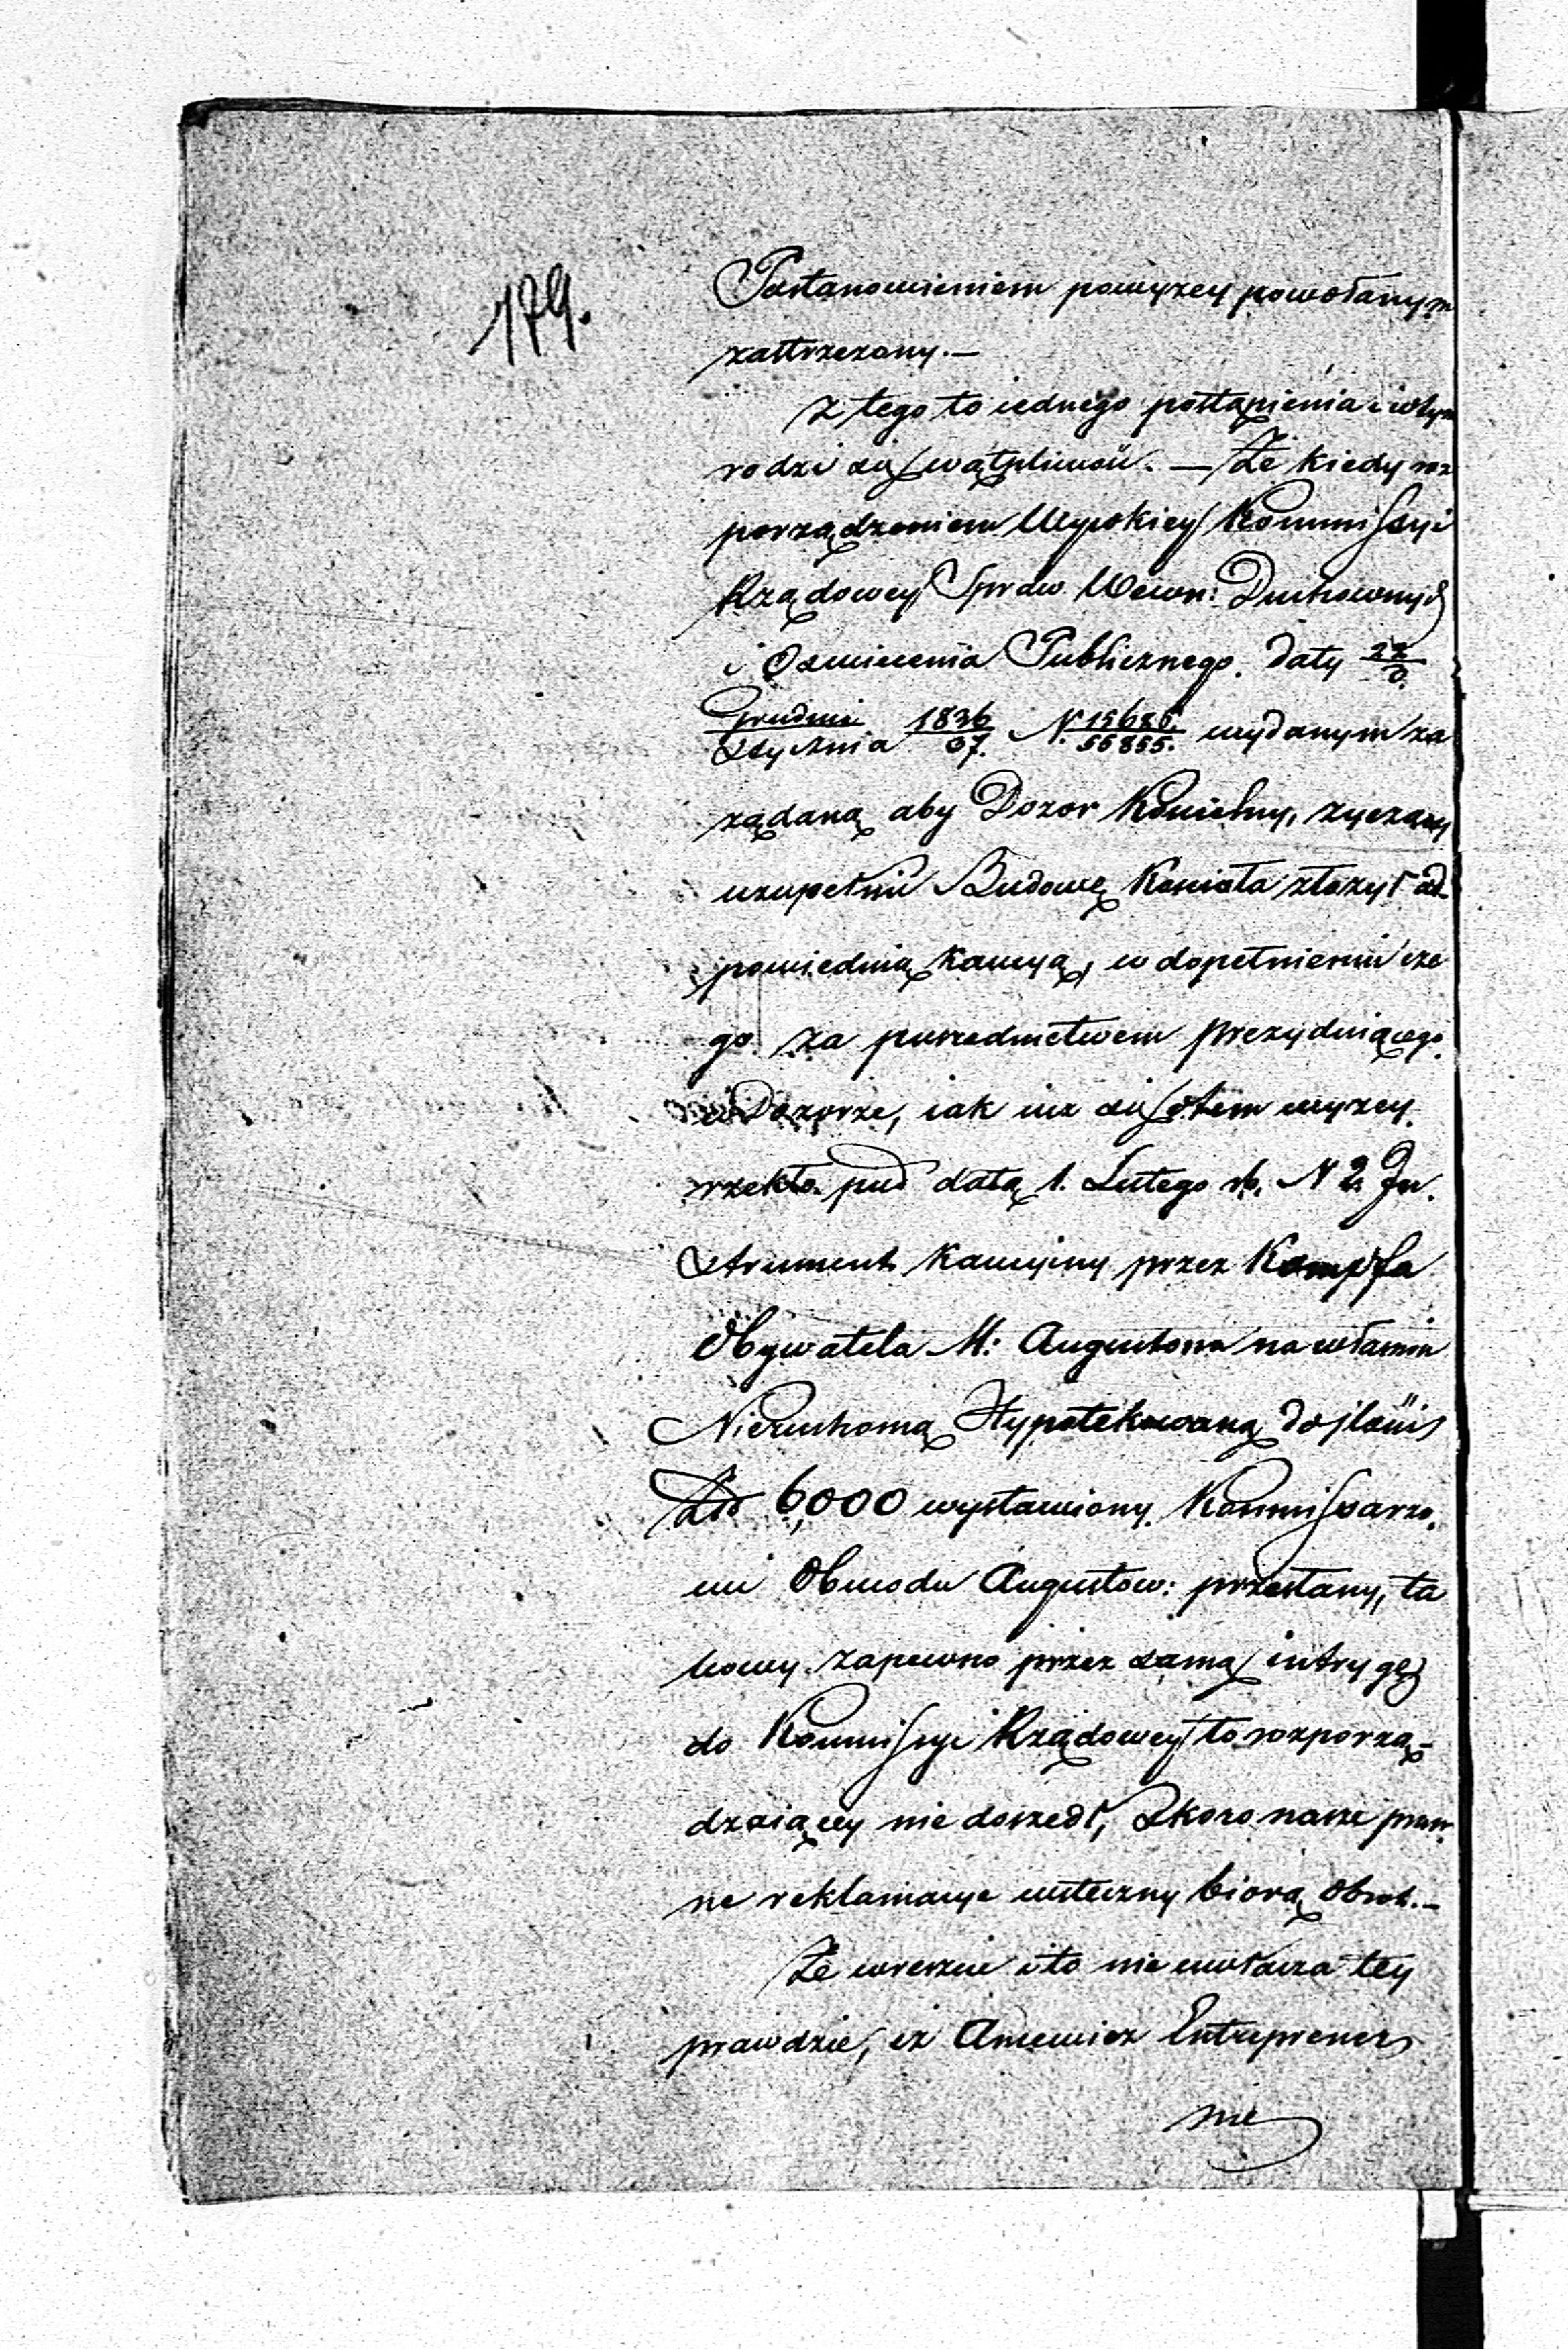 179.
Postanowieniem powyzey powołanym
zastrzezony. —
z tego to iednego postąpienia i w tym
rodzi się wątpliwość. — Że kiedy roz
porządzeniem Wysokiey Kommissyi
Rządowey Spraw Wewn: Duchownych
i Oswiecenia Publicznego. daty 22/3.
Grudnia/Stycznia 1836/37. N. 15686./55855. wydanym za
ządaną aby Dozor Kościelny, zyczący
uzupełnić Budowę Kościoła złozył od-
powiednią Kaucyą, w dopełnieniu cze
go za posrednictwem prezyduiącego
w Dozorze, iak iuz się o tem wyzey
rzekło. pod datą 1. Lutego rb. N 2. In.
strument Kaucyiny przez Kampfa
Obywatela M: Augustowa na własnią
Nieruchomą Hypotekowaną do ilości
Złp 6,000 wystawiony. Kommissarzo.
wi Obwodu Augustow: przesłany, ta
kowy. zapewno przez samą intrygę
do Kommissyi Rządowey to rozporzą-
dzaiącey nie doszedł, Skoro nasze praw.
ne reklamacye wsteczny biorą obrot. —
Że wreszcie i to nie uwłacza tey
prawdzie, iz Ancewicz Entreprener
nie